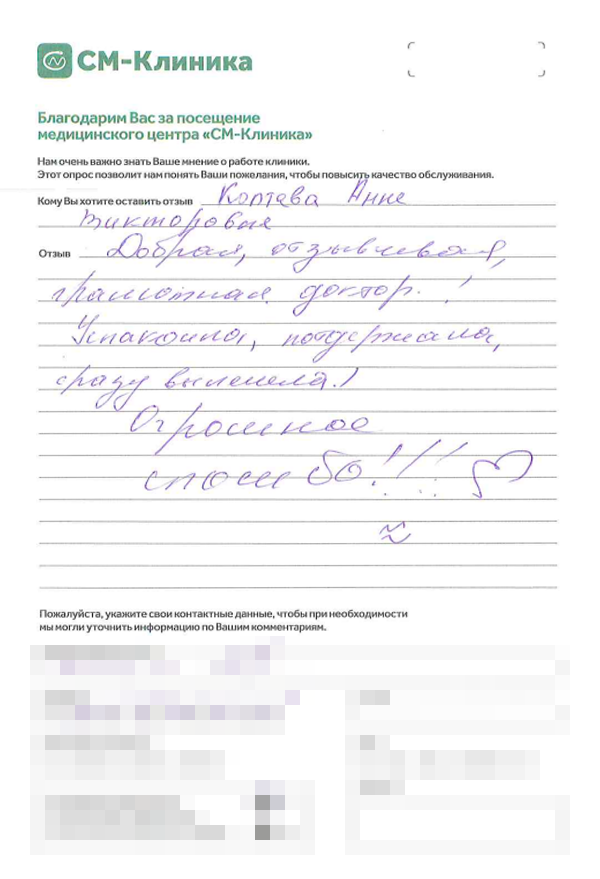 СМ-Клиника
Благодарим Вас за посещение
медицинского центра «СМ-Клиника»
Нам очень важно знать Ваше мнение о работе клиники.
Этот опрос позволит нам понять Ваши пожелания, чтобы повысить качество обслуживания.
Кому Вы хотите оставить отзыв Коптава Анне
Викторовне
Отзыв Добрая, отзывчевая,
грамотная доктор. !
Успакоила, поддержала,
сразу вылечела!
Огромное
спосибо!!!!
Пожалуйста, укажите свои контактные данные, чтобы при необходимости
мы могли уточнить информацию по Вашим комментариям.